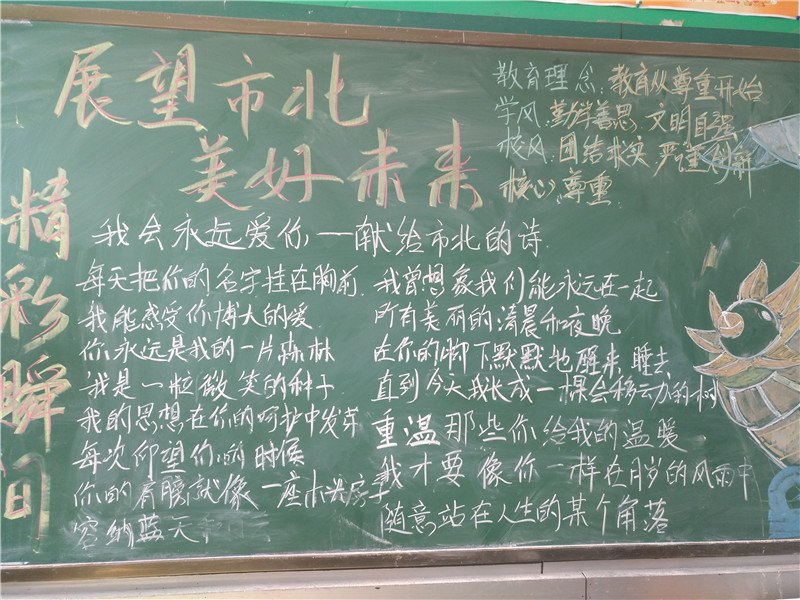 展望市北
美好未来
教育理念:教育从尊重开始
学风:勤学善思 文明自强
校风:团结求实 严谨创新
核心:尊重
精彩瞬间
我会永远爱你——献给市北的诗
每天把你的名字挂在胸前
我能感受你博大的爱
你永远是我的一片森林
我是一粒微笑的种子
我的思想在你的呵护中发芽
每次仰望你的时候
你的肩膀就像一座木头房子
容纳蓝天
我曾想象我们能永远在一起
所有美丽的清晨和夜晚
在你的脚下默默地醒来、睡去
直到今天我长成一棵会移动的树
重温那些你给我的温暖
我才要像你一样在岁月的风雨中
随意站在人生的某个角落